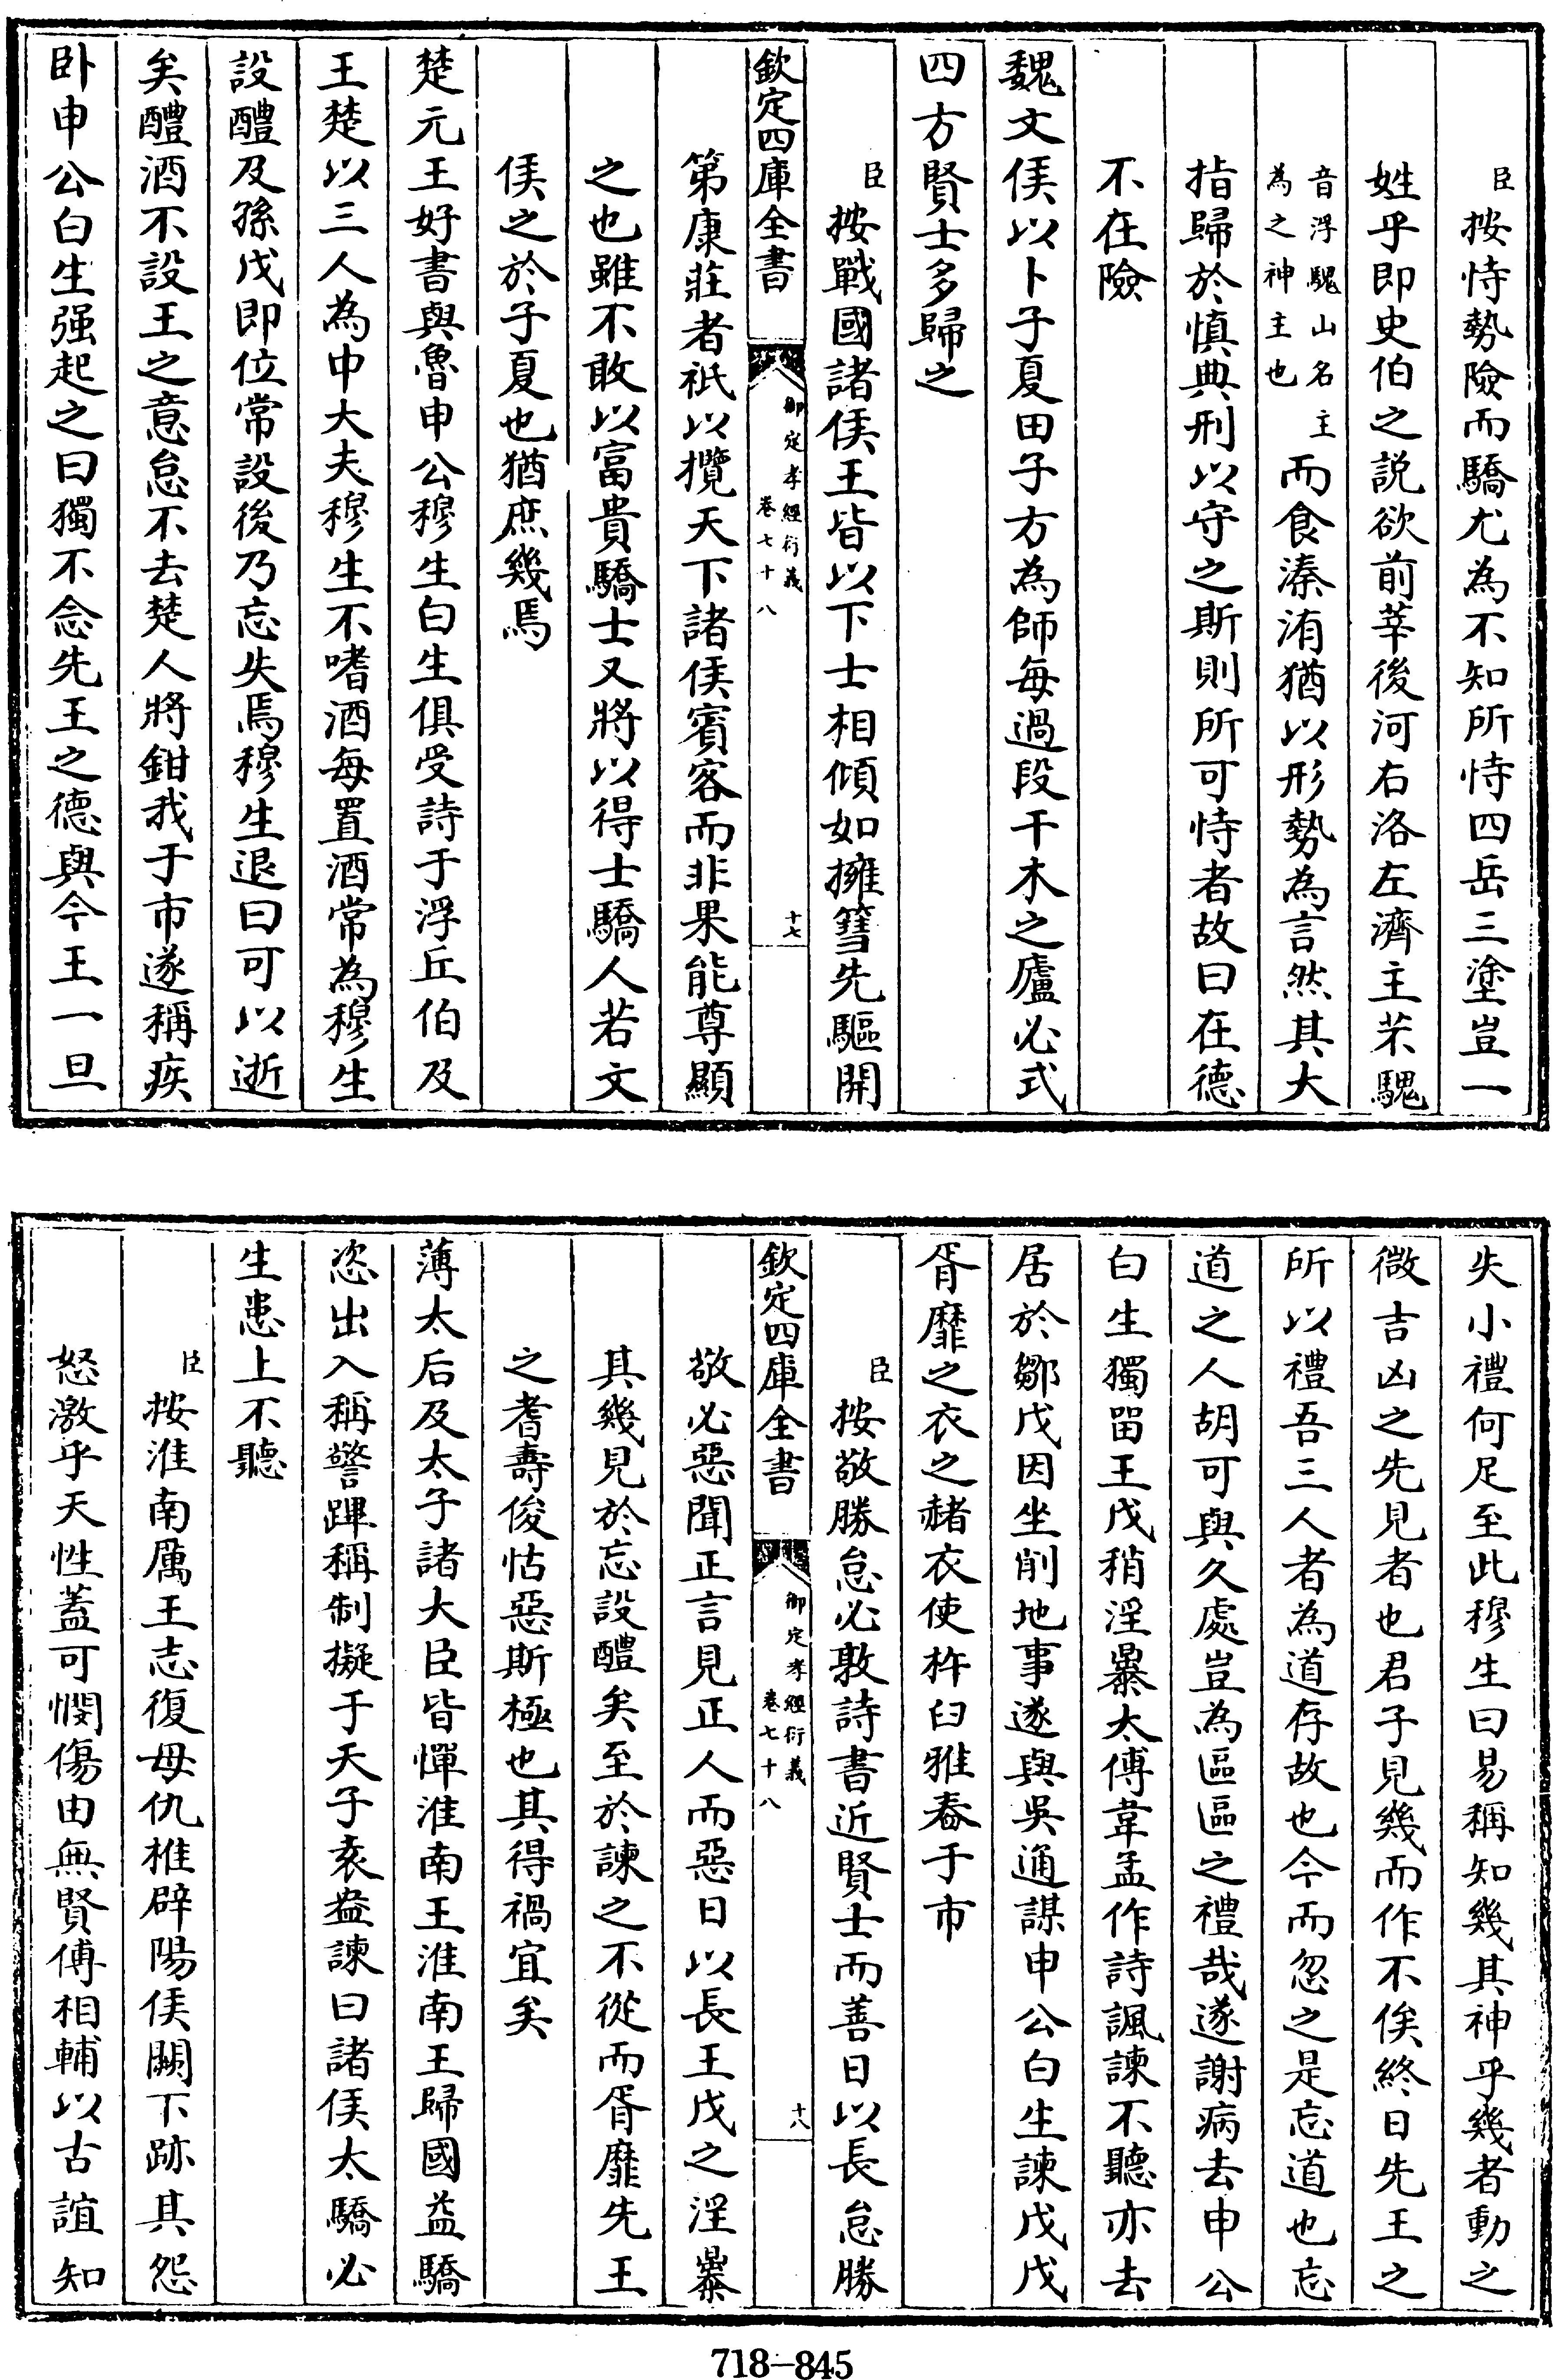 臣按恃勢險而驕尤為不知所恃四岳三塗豈一
姓乎即史伯之説欲前莘後河右洛左濟主芣騩
音浮騩山名主
為之神主也
而食溱洧猶以形勢為言然其大
指歸於慎典刑以守之斯則所可恃者故曰在德
不在險
魏文侯以卜子夏田子方為師每過段干木之廬必式
四方賢士多歸之
臣按戰國諸侯王皆以下士相傾如擁篲先驅開
欽定四庫全書
御定孝經衍義
卷七十八
十七
第康莊者祇以攬天下諸侯賓客而非果能尊顯
之也雖不敢以富貴驕士又將以得士驕人若文
侯之於子夏也猶庶幾焉
楚元王好書與魯申公穆生白生俱受詩于浮丘伯及
王楚以三人為中大夫穆生不嗜酒每置酒常為穆生
設醴及孫戊即位常設後乃忘失焉穆生退曰可以逝
矣醴酒不設王之意怠不去楚人將鉗我于市遂稱疾
卧申公白生强起之曰獨不念先王之德與今王一旦
失小禮何足至此穆生曰易稱知幾其神乎幾者動之
微吉凶之先見者也君子見幾而作不俟終日先王之
所以禮吾三人者為道存故也今而忽之是忘道也忘
道之人胡可與久處豈為區區之禮哉遂謝病去申公
白生獨留王戊稍淫暴太傅韋孟作詩諷諫不聽亦去
居於鄒戊因坐削地事遂與吳通謀申公白生諫戊戊
胥靡之衣之赭衣使杵臼雅舂于市
臣按敬勝怠必敦詩書近賢士而善日以長怠勝
欽定四庫全書
御定孝經衍義
卷七十八
十八
敬必惡聞正言見正人而惡日以長王戊之淫暴
其幾見於忘設醴矣至於諫之不從而胥靡先王
之耆壽俊怙惡斯極也其得禍宜矣
薄太后及太子諸大臣皆憚淮南王淮南王歸國益驕
恣出入稱警蹕稱制擬于天子袁盎諫曰諸侯太驕必
生患上不聽
臣按淮南厲王志復母仇椎辟陽侯闕下跡其怨
怒激乎天性蓋可憫傷由無賢傅相輔以古誼知
718-845